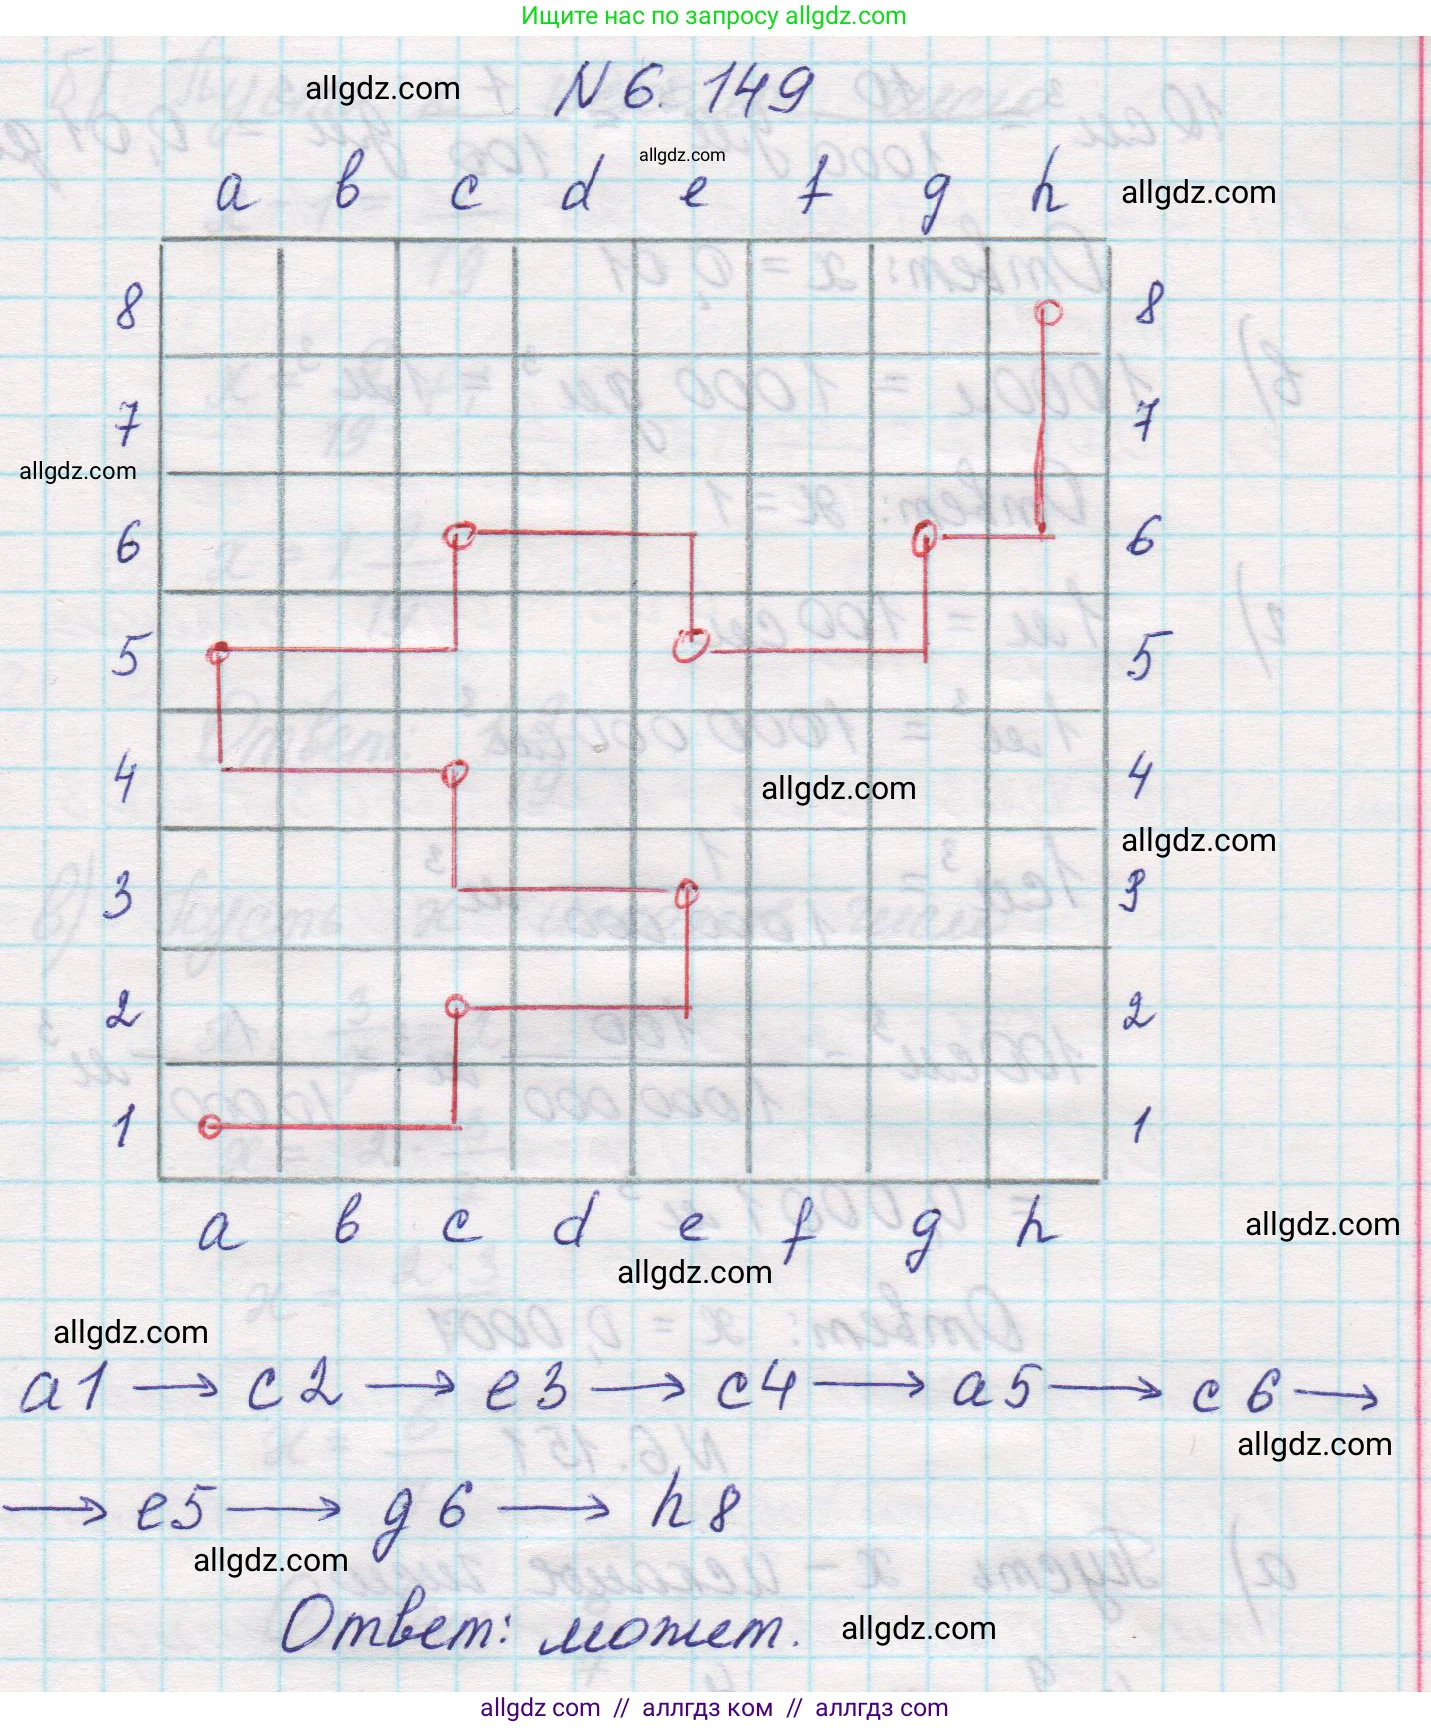 Ищите нас по запросу allgdz.com
allgdz.com N 6. 149
allgdz.com
a в c d e f g h allgdz.com
8 8
7 7
allgdz.com
6 6
5 5
4 allgdz.com 4
allgdz.com
3 3
2 2
1 1
a в c d e f g h allgdz.com
allgdz.com
allgdz.com
a1 → c2 → e3 → c4 → a5 → c6 →
allgdz.com
→ e5 → g6 → h8
allgdz.com
Ответ: может. allgdz.com
allgdz com // аллгдз ком // аллгдз com